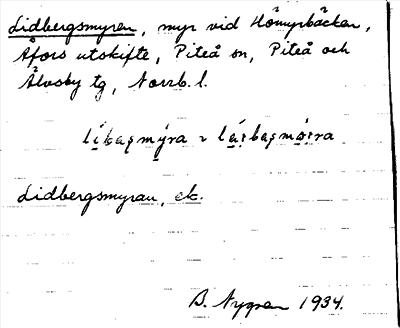 Lidbergsmyren, myr vid Hömyrbäcken,
Åfors utskifte, Piteå sn, Piteå och
Älvsby tg, Norrb. l.
Lidbergsmyran, ek.
B. Nygren 1934.